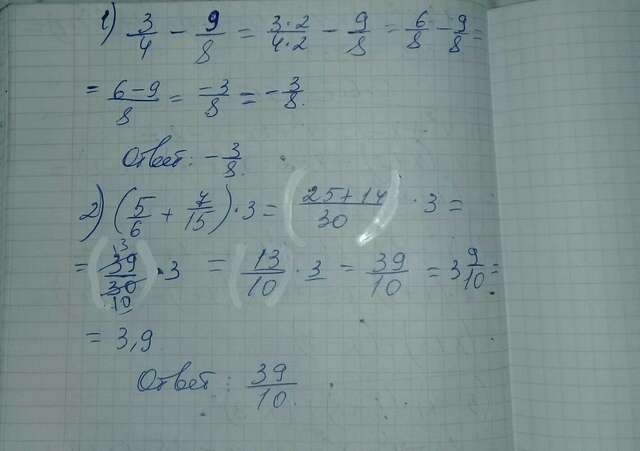 1) 3/4 - 9/8 = 3·2/4·2 - 9/8 = 6/8 - 9/8 =
= 6-9/8 = -3/8 = -3/8.
Ответ: -3/8.
2) (5/6 + 7/15)·3 = (25+14/30)·3 =
= (39/30 13/10)·3 = (13/10)·3 = 39/10 = 3 9/10 =
= 3,9
Ответ: 39/10.